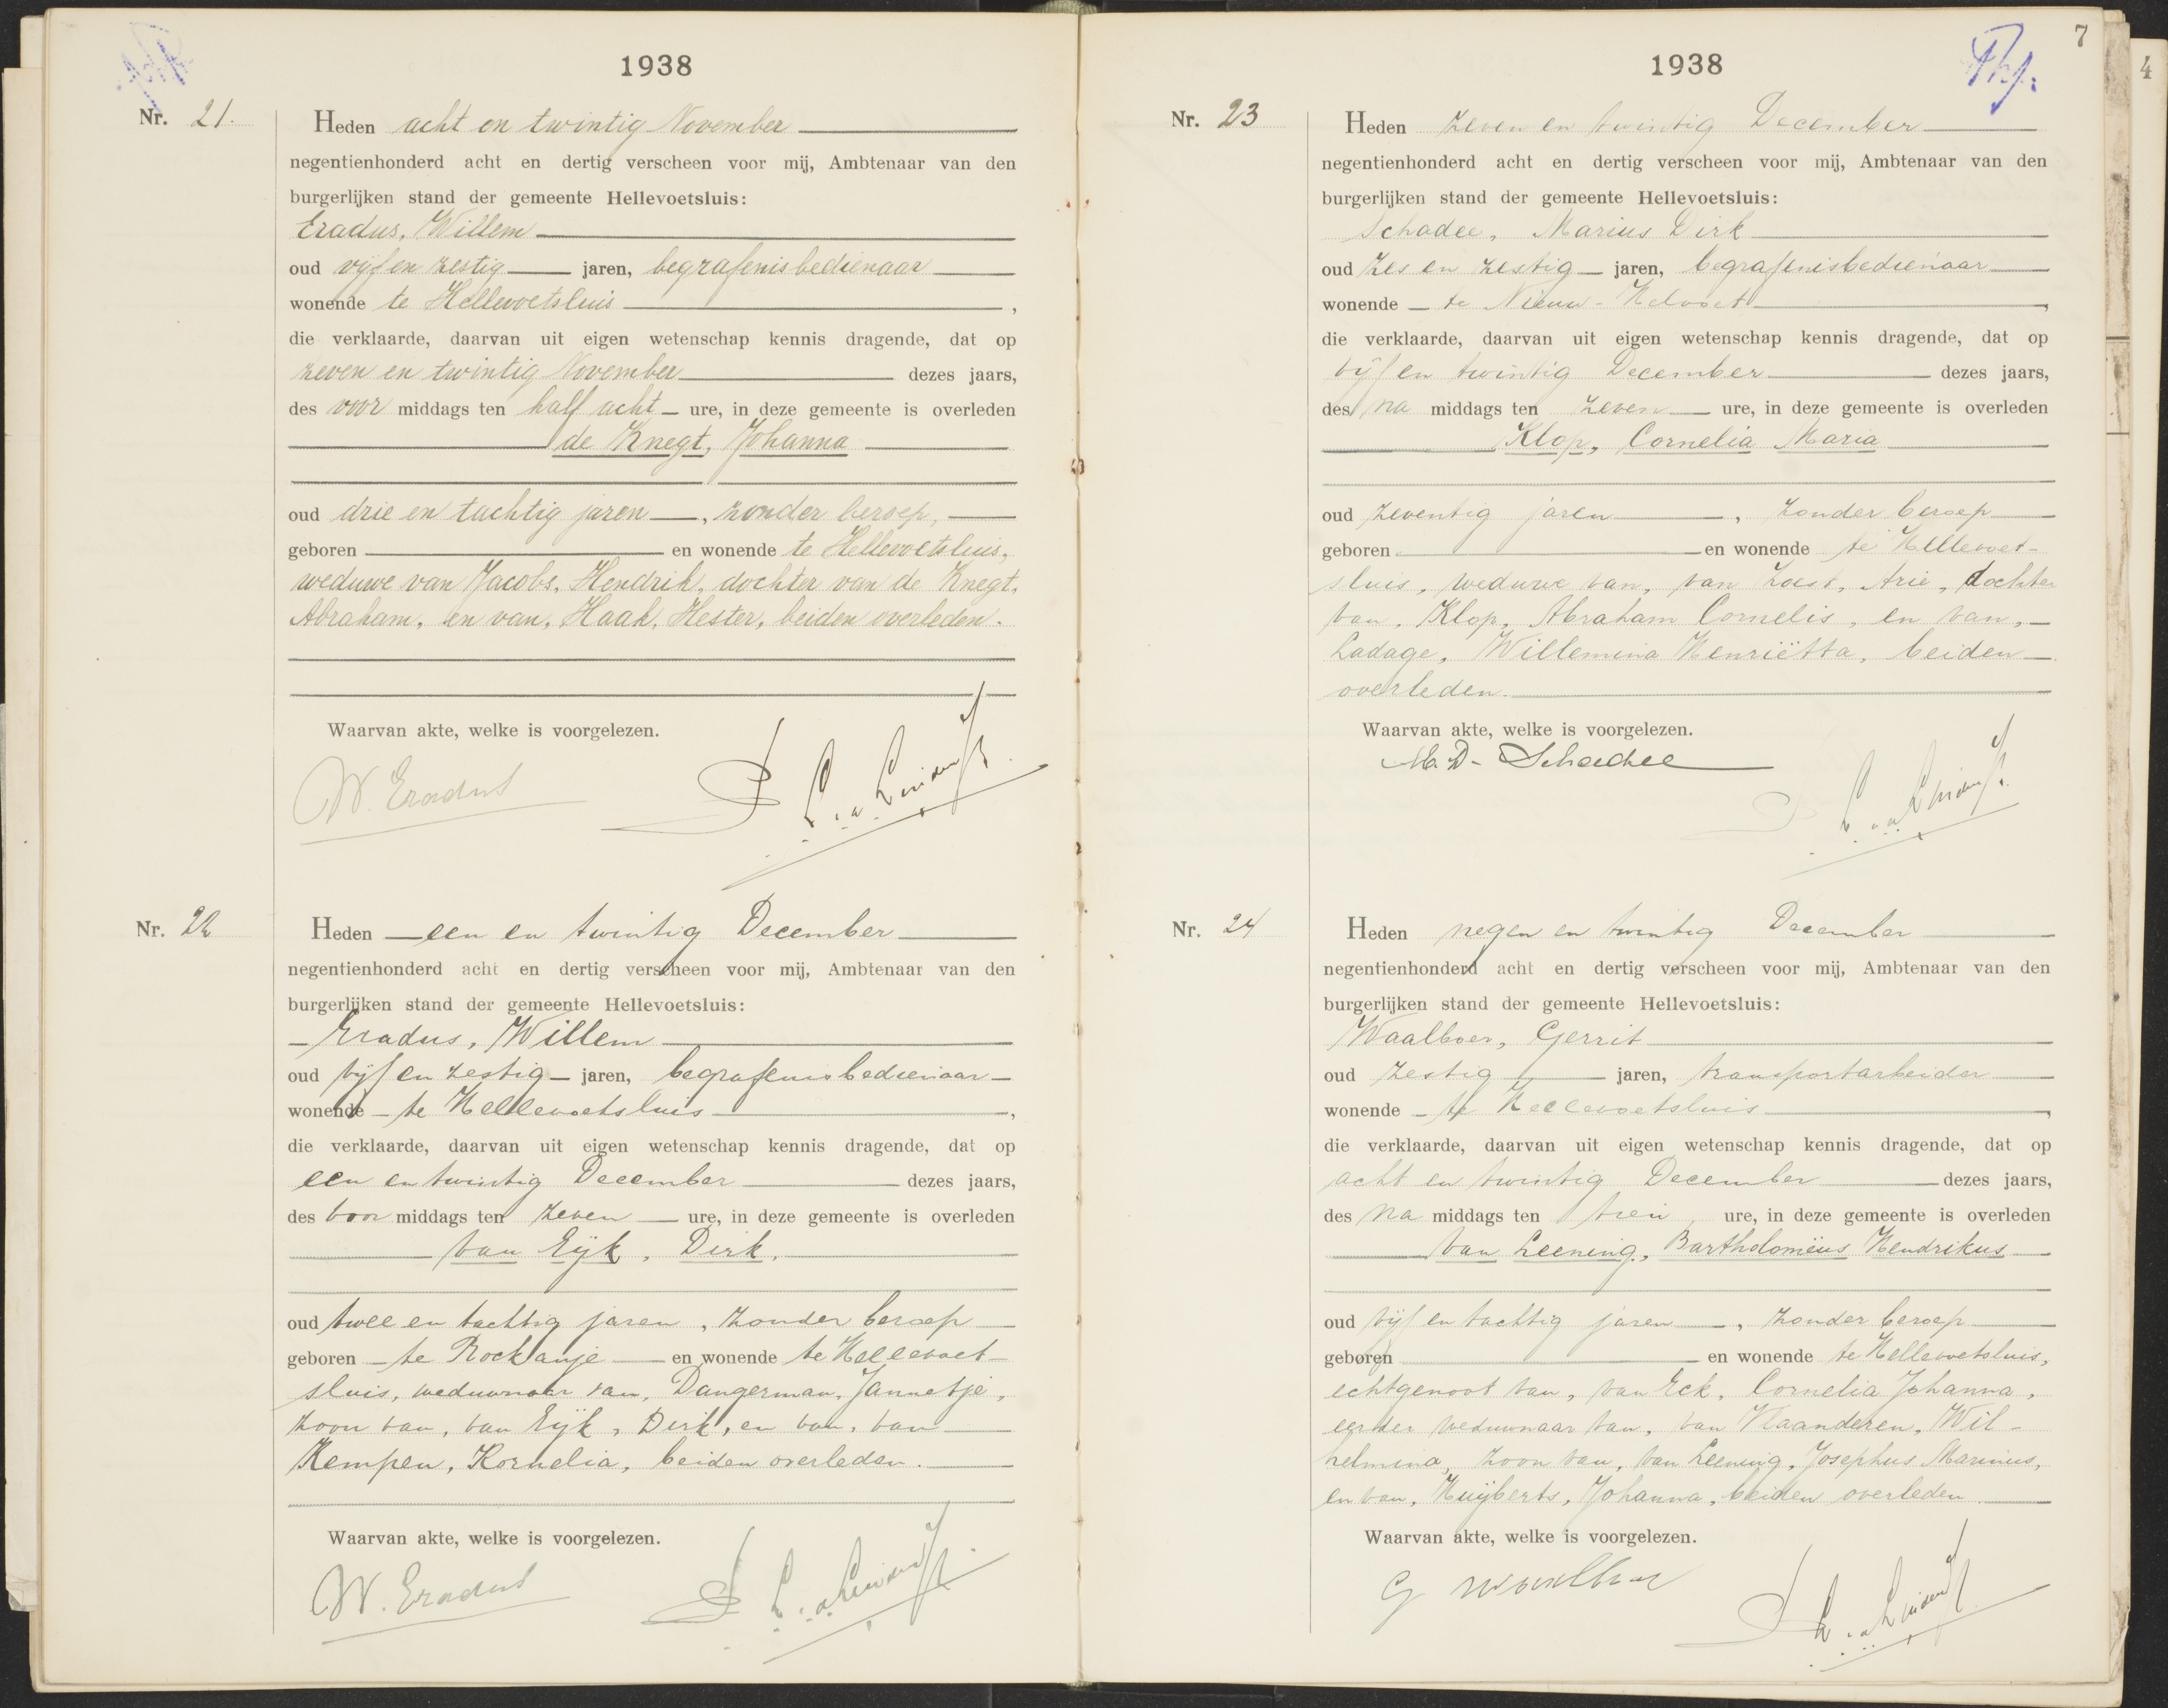 1938
Nr. 21.
Heden acht en twintig November
negentienhonderd acht en dertig verscheen voor mij, Ambtenaar van den
burgerlijken stand der gemeente Hellevoetsluis:
Eradus, Willem
oud vijf en zestig jaren, begrafenisbedienaar
wonende te Hellevoetsluis,
die verklaarde, daarvan uit eigen wetenschap kennis dragende, dat op
zeven en twintig November dezes jaars,
des voor middags ten half acht ure, in deze gemeente is overleden
de Knegt, Johanna
oud drie en tachtig jaren, zonder beroep,
geboren en wonende te Hellevoetsluis,
weduwe van Jacobs, Hendrik, dochter van de Knegt,
Abraham, en van, Haak, Hester, beiden overleden.
Waarvan akte, welke is voorgelezen.
W. Eradus
Nr. 22
Heden een en twintig December
negentienhonderd acht en dertig verscheen voor mij, Ambtenaar van den
burgerlijken stand der gemeente Hellevoetsluis:
Eradus, Willem
oud vijf en zestig jaren, begrafenisbedienaar
wonende te Hellevoetsluis,
die verklaarde, daarvan uit eigen wetenschap kennis dragende, dat op
een en twintig December dezes jaars,
des voor middags ten zeven ure, in deze gemeente is overleden
van Eijk, Dirk,
oud twee en tachtig jaren, zonder beroep
geboren te Rockanje en wonende te Hellevoet-
sluis, weduwnaar van, Dangerman, Jannetje,
zoon van, van Eijk, Dirk, en van, van
Kempen, Kornelia, beiden overleden.
Waarvan akte, welke is voorgelezen.
W. Eradus
7
4
1938
Nr. 23
Heden zeven en twintig December
negentienhonderd acht en dertig verscheen voor mij, Ambtenaar van den
burgerlijken stand der gemeente Hellevoetsluis:
Schadee, Marius Dirk
oud zes en zestig jaren, begrafenisbedienaar
wonende te Nieuw-Helvoet,
die verklaarde, daarvan uit eigen wetenschap kennis dragende, dat op
vijf en twintig December dezes jaars,
des na middags ten zeven ure, in deze gemeente is overleden
Klop, Cornelia Maria
oud zeventig jaren, zonder beroep
geboren en wonende te Hellevoet-
sluis, weduwe van, van Zoest, Arie, dochter
van, Klop, Abraham Cornelis, en van,
Ladage, Willemina Henriëtta, beiden
overleden.
Waarvan akte, welke is voorgelezen.
M. D. Schadee
Nr. 24
Heden negen en twintig December
negentienhonderd acht en dertig verscheen voor mij, Ambtenaar van den
burgerlijken stand der gemeente Hellevoetsluis:
Waalboer, Gerrit
oud zestig jaren, transportarbeider
wonende te Hellevoetsluis,
die verklaarde, daarvan uit eigen wetenschap kennis dragende, dat op
acht en twintig December dezes jaars,
des na middags ten ure, in deze gemeente is overleden
van Leening, Bartholomëus Hendrikus
oud vijf en tachtig jaren, zonder beroep
geboren en wonende te Hellevoetsluis,
echtgenoot van, van Eck, Cornelia Johanna,
eerder weduwnaar van, van Vlaanderen, Wil-
helmina, zoon van, van Leening, Josephus Marinus,
en van, Huijberts, Johanna, beiden overleden
Waarvan akte, welke is voorgelezen.
G Waalboer